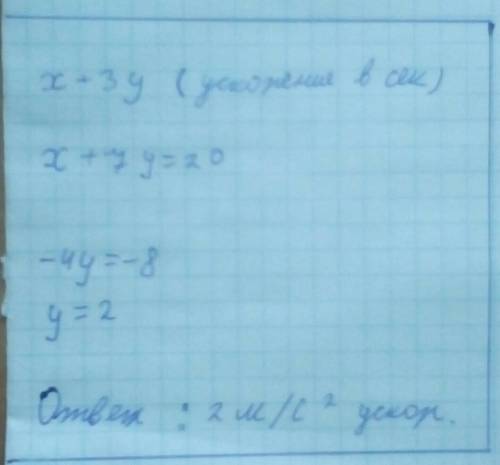 x + 3y (ускорение в сек)
x + 7y = 20
-4y = -8
y = 2
Ответ : 2 м/с² ускор.